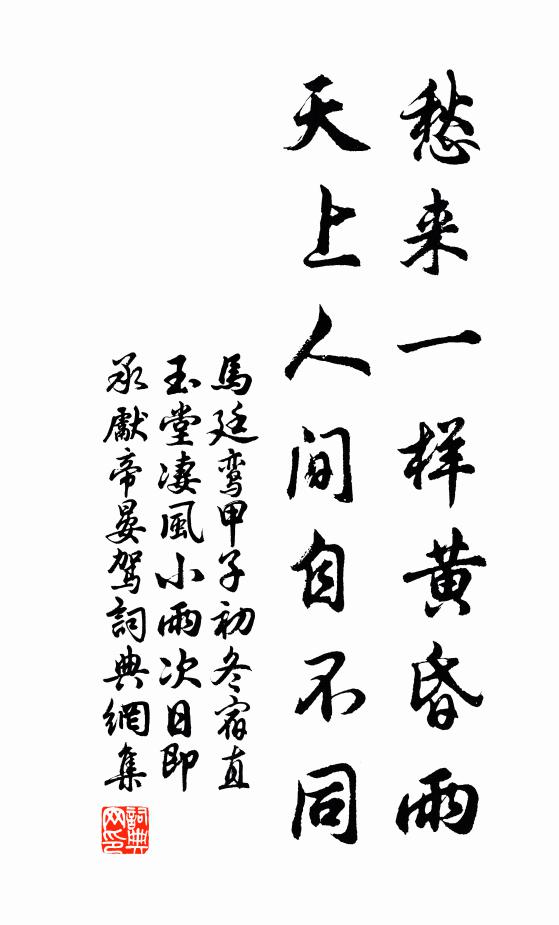 愁来一样黄昏雨
天上人间自不同
馬廷鸾甲子初冬宿直
玉堂凄風小雨次日即
承獻帝晏駕詞典網集
詞典网印